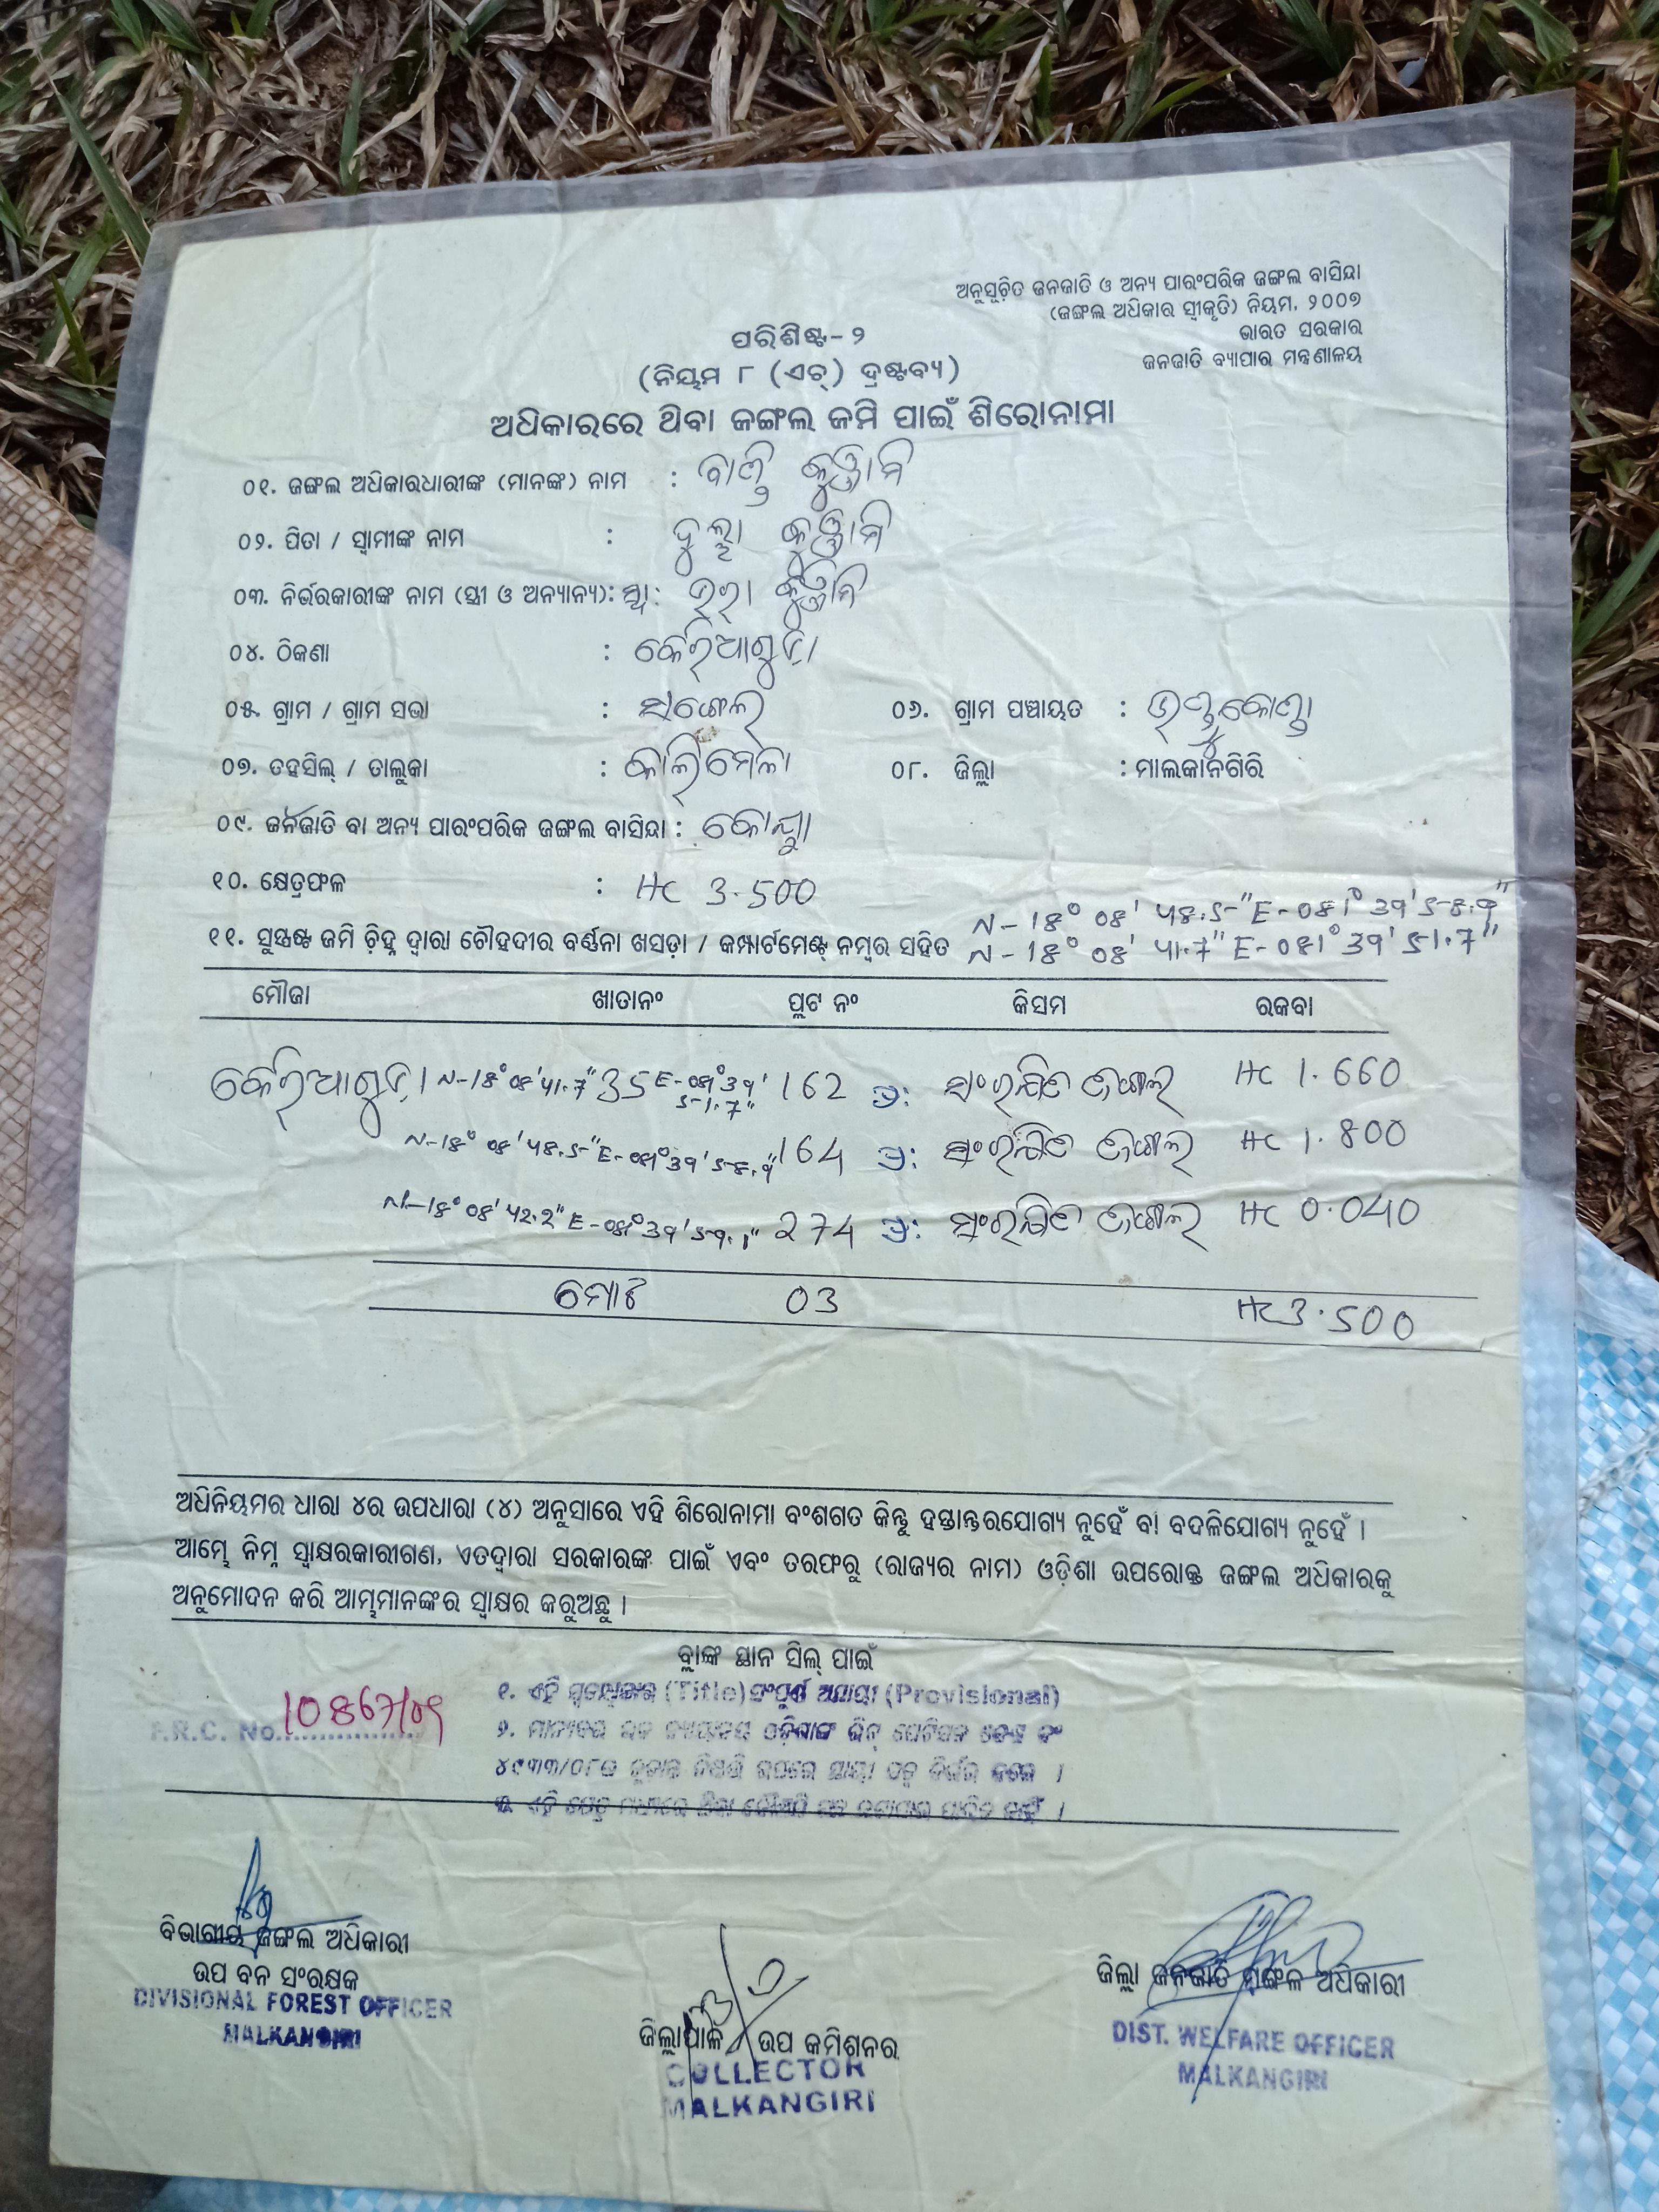 ଅନୁସୂଚିତ ଜନଜାତି ଓ ଅନ୍ୟ ପାରଂପରିକ ଜଙ୍ଗଲ ବାସିନ୍ଦା
(ଜଙ୍ଗଲ ଅଧିକାର ସ୍ୱୀକୃତି) ନିୟମ, ୨୦୦୭
ଭାରତ ସରକାର
ଜନଜାତି ବ୍ୟାପାର ମନ୍ତ୍ରଣାଳୟ
ପରିଶିଷ୍ଟ-୨
(ନିୟମ ୮ (ଏଚ୍) ଦ୍ରଷ୍ଟବ୍ୟ)
ଅଧିକାରରେ ଥିବା ଜଙ୍ଗଲ ଜମି ପାଇଁ ଶିରୋନାମା
୦୧. ଜଙ୍ଗଲ ଅଧିକାରଧାରୀଙ୍କ (ମାନଙ୍କ) ନାମ :
୦୨. ପିତା / ସ୍ୱାମୀଙ୍କ ନାମ :
୦୩. ନିର୍ଭରକାରୀଙ୍କ ନାମ (ସ୍ତ୍ରୀ ଓ ଅନ୍ୟାନ୍ୟ) :
୦୪. ଠିକଣା :
୦୫. ଗ୍ରାମ / ଗ୍ରାମ ସଭା : ୦୬. ଗ୍ରାମ ପଞ୍ଚାୟତ :
୦୭. ତହସିଲ୍ / ତାଲୁକା : କାଲିମେଳା ୦୮. ଜିଲ୍ଲା : ମାଲକାନଗିରି
୦୯. ଜନଜାତି ବା ଅନ୍ୟ ପାରଂପରିକ ଜଙ୍ଗଲ ବାସିନ୍ଦା : କୋୟା
୧୦. କ୍ଷେତ୍ରଫଳ : HC 3.500
N-18° 08' 48.5" E-081° 39' 58.9"
୧୧. ସୁସ୍ପଷ୍ଟ ଜମି ଚିହ୍ନ ଦ୍ୱାରା ଚୌହଦୀର ବର୍ଣ୍ଣନା ଖସଡ଼ା / କମ୍ପାର୍ଟମେଣ୍ଟ ନମ୍ବର ସହିତ N-18° 08' 41.7" E-081° 39' 51.7"
ମୌଜା ଖାତାନଂ ପ୍ଲଟ ନଂ କିସମ ରକବା
N-18° 08' 41.7" 35 E-081° 39' 51.7" 162 ସଂରକ୍ଷିତ ଜଙ୍ଗଲ HC 1.660
N-18° 08' 48.5" E-081° 39' 58.9" 164 ସଂରକ୍ଷିତ ଜଙ୍ଗଲ HC 1.800
N-18° 08' 42.2" E-081° 39' 59.1" 274 ସଂରକ୍ଷିତ ଜଙ୍ଗଲ HC 0.040
ମୋଟ 03 HC 3.500
ଅଧିନିୟମର ଧାରା ୪ର ଉପଧାରା (୪) ଅନୁସାରେ ଏହି ଶିରୋନାମା ବଂଶଗତ କିନ୍ତୁ ହସ୍ତାନ୍ତରଯୋଗ୍ୟ ନୁହେଁ ବା ବଦଳିଯୋଗ୍ୟ ନୁହେଁ ।
ଆମ୍ଭେ ନିମ୍ନ ସ୍ୱାକ୍ଷରକାରୀଗଣ, ଏତଦ୍ୱାରା ସରକାରଙ୍କ ପାଇଁ ଏବଂ ତରଫରୁ (ରାଜ୍ୟର ନାମ) ଓଡ଼ିଶା ଉପରୋକ୍ତ ଜଙ୍ଗଲ ଅଧିକାରକୁ
ଅନୁମୋଦନ କରି ଆମ୍ଭମାନଙ୍କର ସ୍ୱାକ୍ଷର କରୁଅଛୁ ।
ବ୍ଲାଙ୍କ ସ୍ଥାନ ସିଲ୍ ପାଇଁ
୧. ଏହି (Title) ସଂପୂର୍ଣ୍ଣ ଅସ୍ଥାୟୀ (Provisional)
F.R.C. No. 10867/09
୪୯୩୩/୦୮ର
ବିଭାଗୀୟ ଜଙ୍ଗଲ ଅଧିକାରୀ
ଉପ ବନ ସଂରକ୍ଷକ
DIVISIONAL FOREST OFFICER
MALKANGIRI
ଜିଲ୍ଲାପାଳ / ଉପ କମିଶନର
COLLECTOR
MALKANGIRI
ଜିଲ୍ଲା ଜନଜାତି ମଙ୍ଗଳ ଅଧିକାରୀ
DIST. WELFARE OFFICER
MALKANGIRI